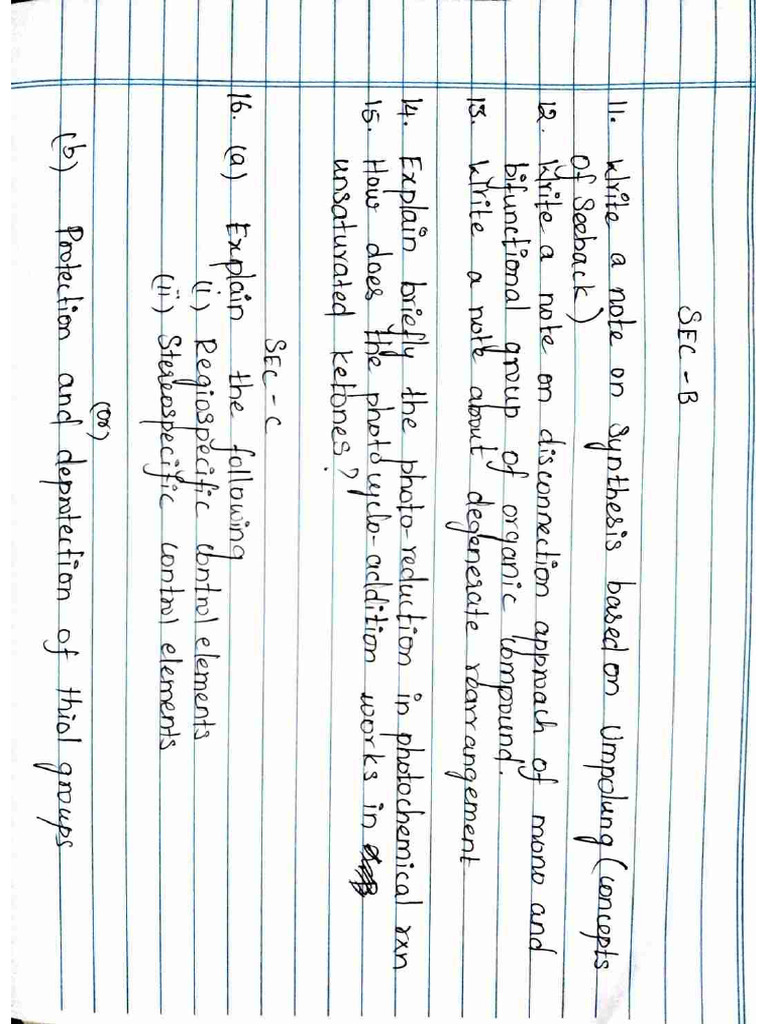 SEC - B
11. Write a note on synthesis based on Umpolung (concepts
of Seeback)
12. Write a note on disconnection approach of mono and
bifunctional group of organic compound.
13. Write a note about degenerate rearrangement
14. Explain briefly the photo-reduction in photochemical rxn
15. How does the photocyclo-addition works in
unsaturated ketones?
SEC - C
16. (a) Explain the following
(i) Regiospecific control elements
(ii) Stereospecific control elements
(or)
(b) Protection and deprotection of thiol groups